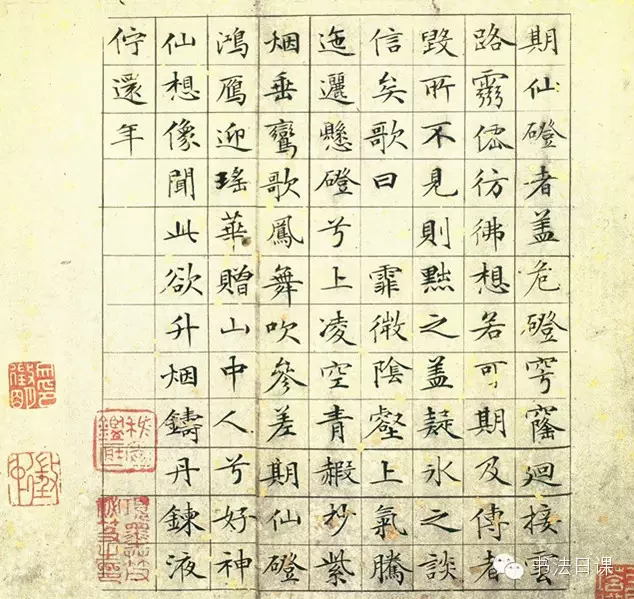 期仙磴者盖危磴穹窿迴接雲
路靈僊彷彿想若可期及傳者
毀所不見則黜之盖疑氷之談
信矣歌曰 霏微陰壑上氣騰
迤邐懸磴兮上凌空青赮杪紫
烟垂鸞歌鳳舞吹參差期仙磴
鴻鴈迎瑤華贈山中人兮好神
仙想像聞此欲升烟鑄丹鍊液
佇還年
书法日课